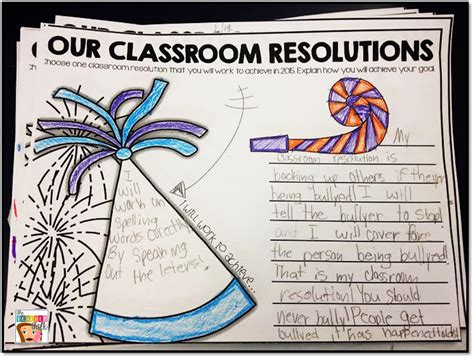 OUR CLASSROOM RESOLUTIONS
Choose one classroom resolution that you will work to achieve in 2015. Explain how you will achieve your goal.
I
will
work on
spelling
words correctly
By Speaking
out the leters!
I will work to achieve...
My
classroom resolution is
backing up others if they
being bullyed! I will
tell the bullyer to stop!
and I will cover for
the person being bullyed!
That is my classroom
resolution! You should
never bully! People get
bullyed it has happened